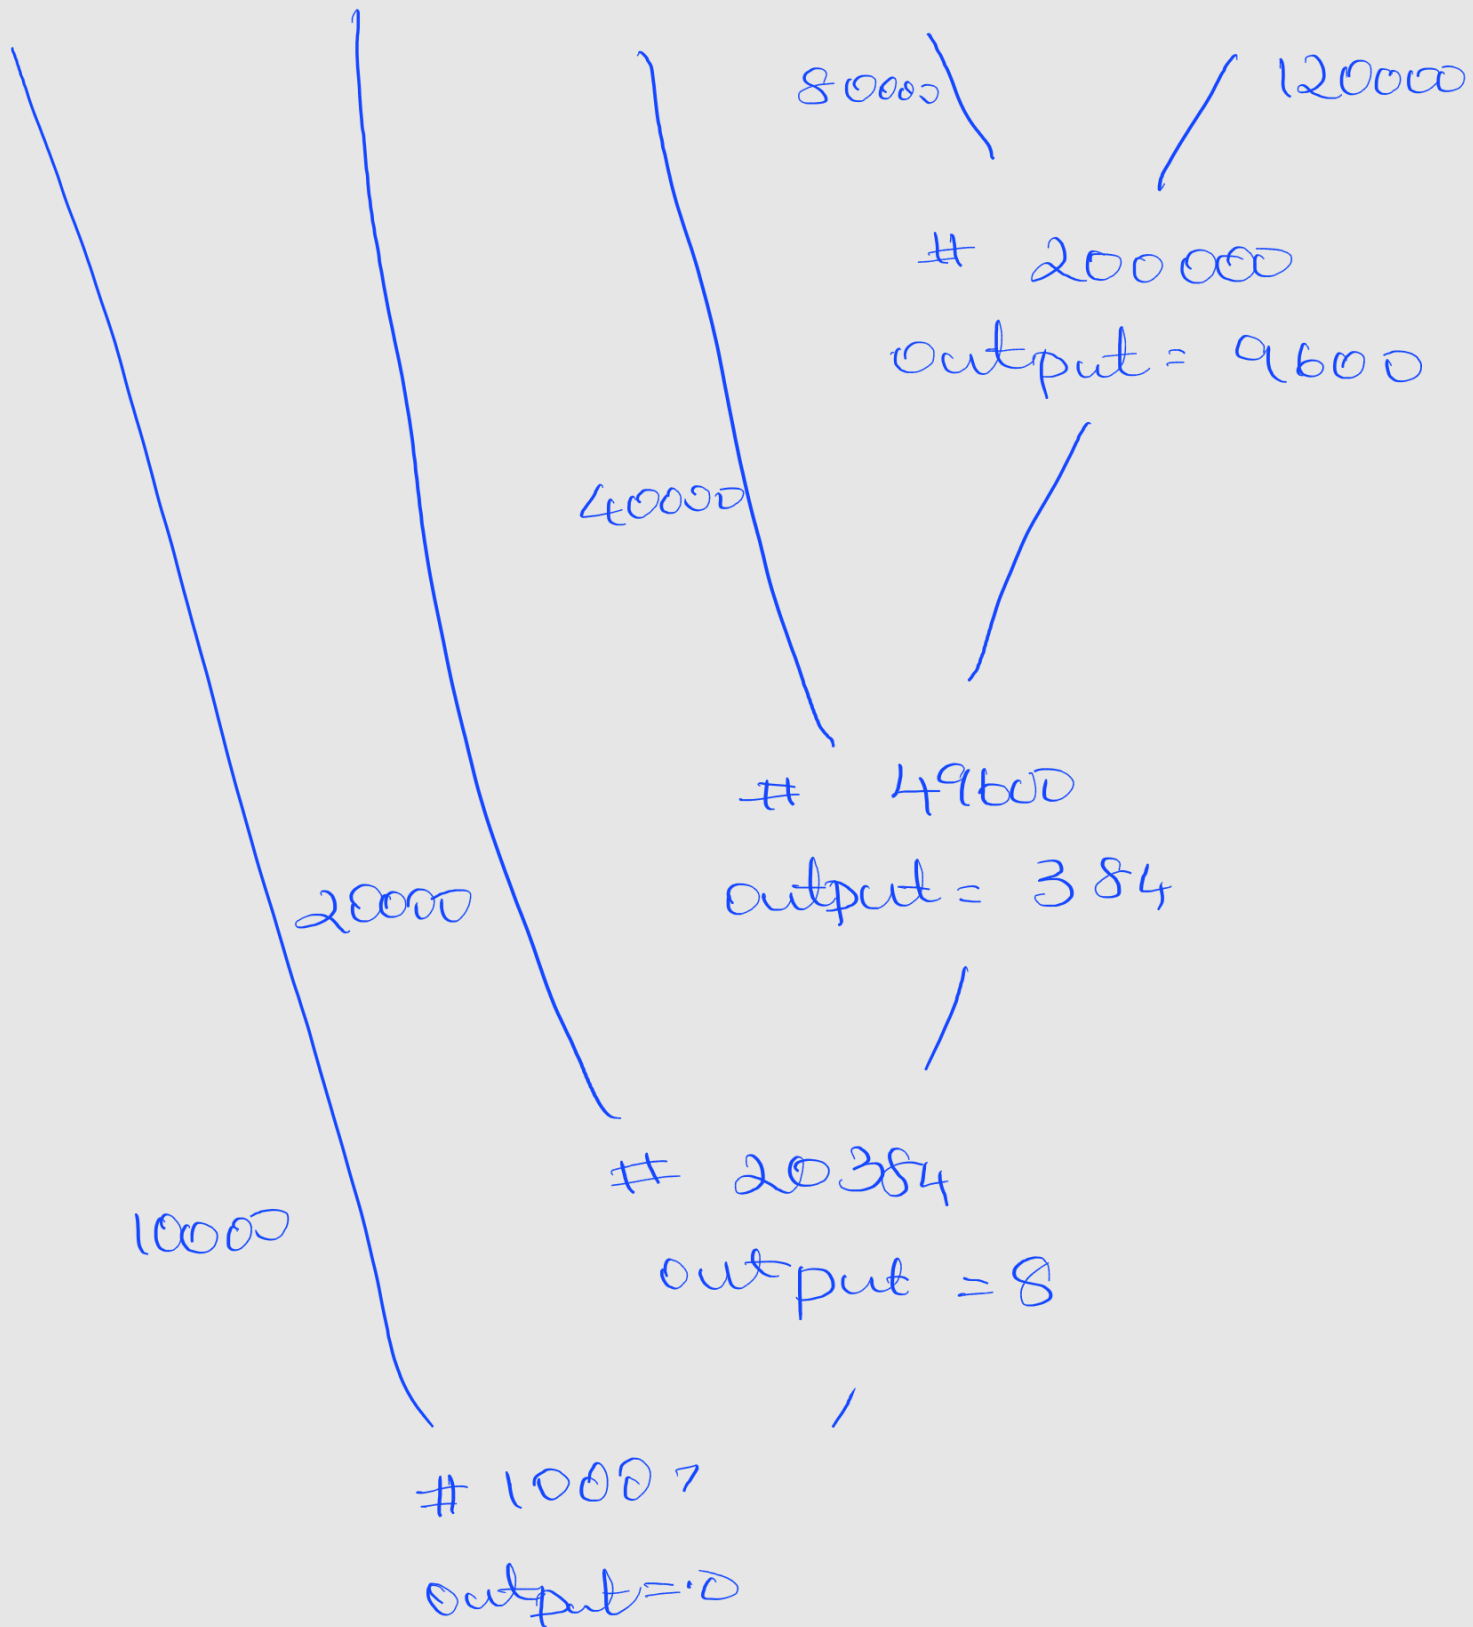 80000
120000
# 200000
output = 9600
40000
# 49600
output = 384
20000
# 20384
output = 8
10000
# 10007
output = 0